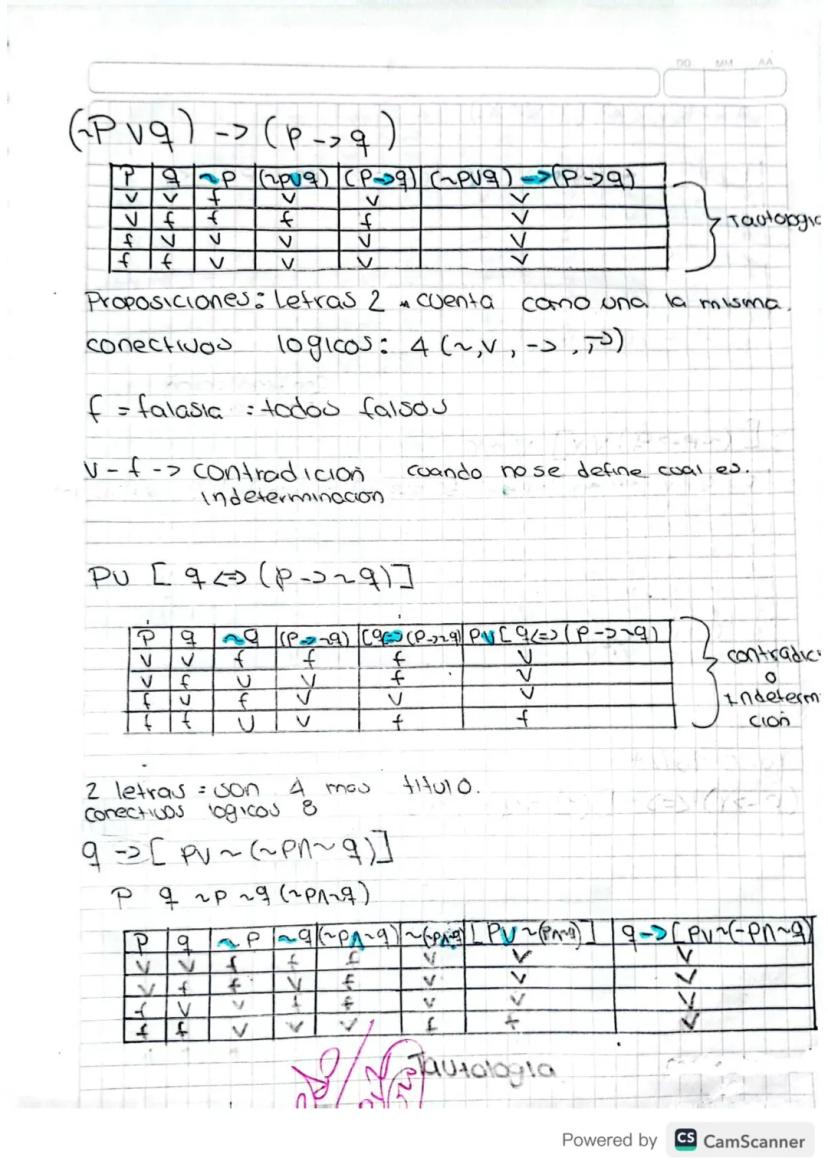 DD MM AA
(~P v q) -> (P -> q)
P q ~P (~pvq) (P->q) (~pvq) -> (P->q)
V V f V V V
V f f f f V
f V V V V V
f f V V V V
Tautologic
Proposiciones: Letras 2 cuenta como una la misma.
conectivos logicos: 4 (~, v, ->,
f = falasia : todos falsos
V - f -> contradicion cuando no se define cual es.
indeterminacion
PV [ q <=> (P -> ~q)]
P q ~q (P->~q) [q<=>(P->~q) PV [ q<=> (P->~q)
V V f f f V
V f V V f V
f V f V V V
f f V V f f
contradic
o
Indeterm
ción
2 letras = son 4 mas titulo.
conectivos logicos 8
q -> [ PV ~ (~P∧~ q)]
P q ~P ~q (~P∧~q)
P q ~P ~q (~P∧~q) ~(~P∧~q [PV ~(P∧~q)] q -> [PV~(~P∧~q)
V V f f f V V V
V f f V f V V V
f V V f f V V V
f f V V V f f V
Tautologia
Powered by CS CamScanner